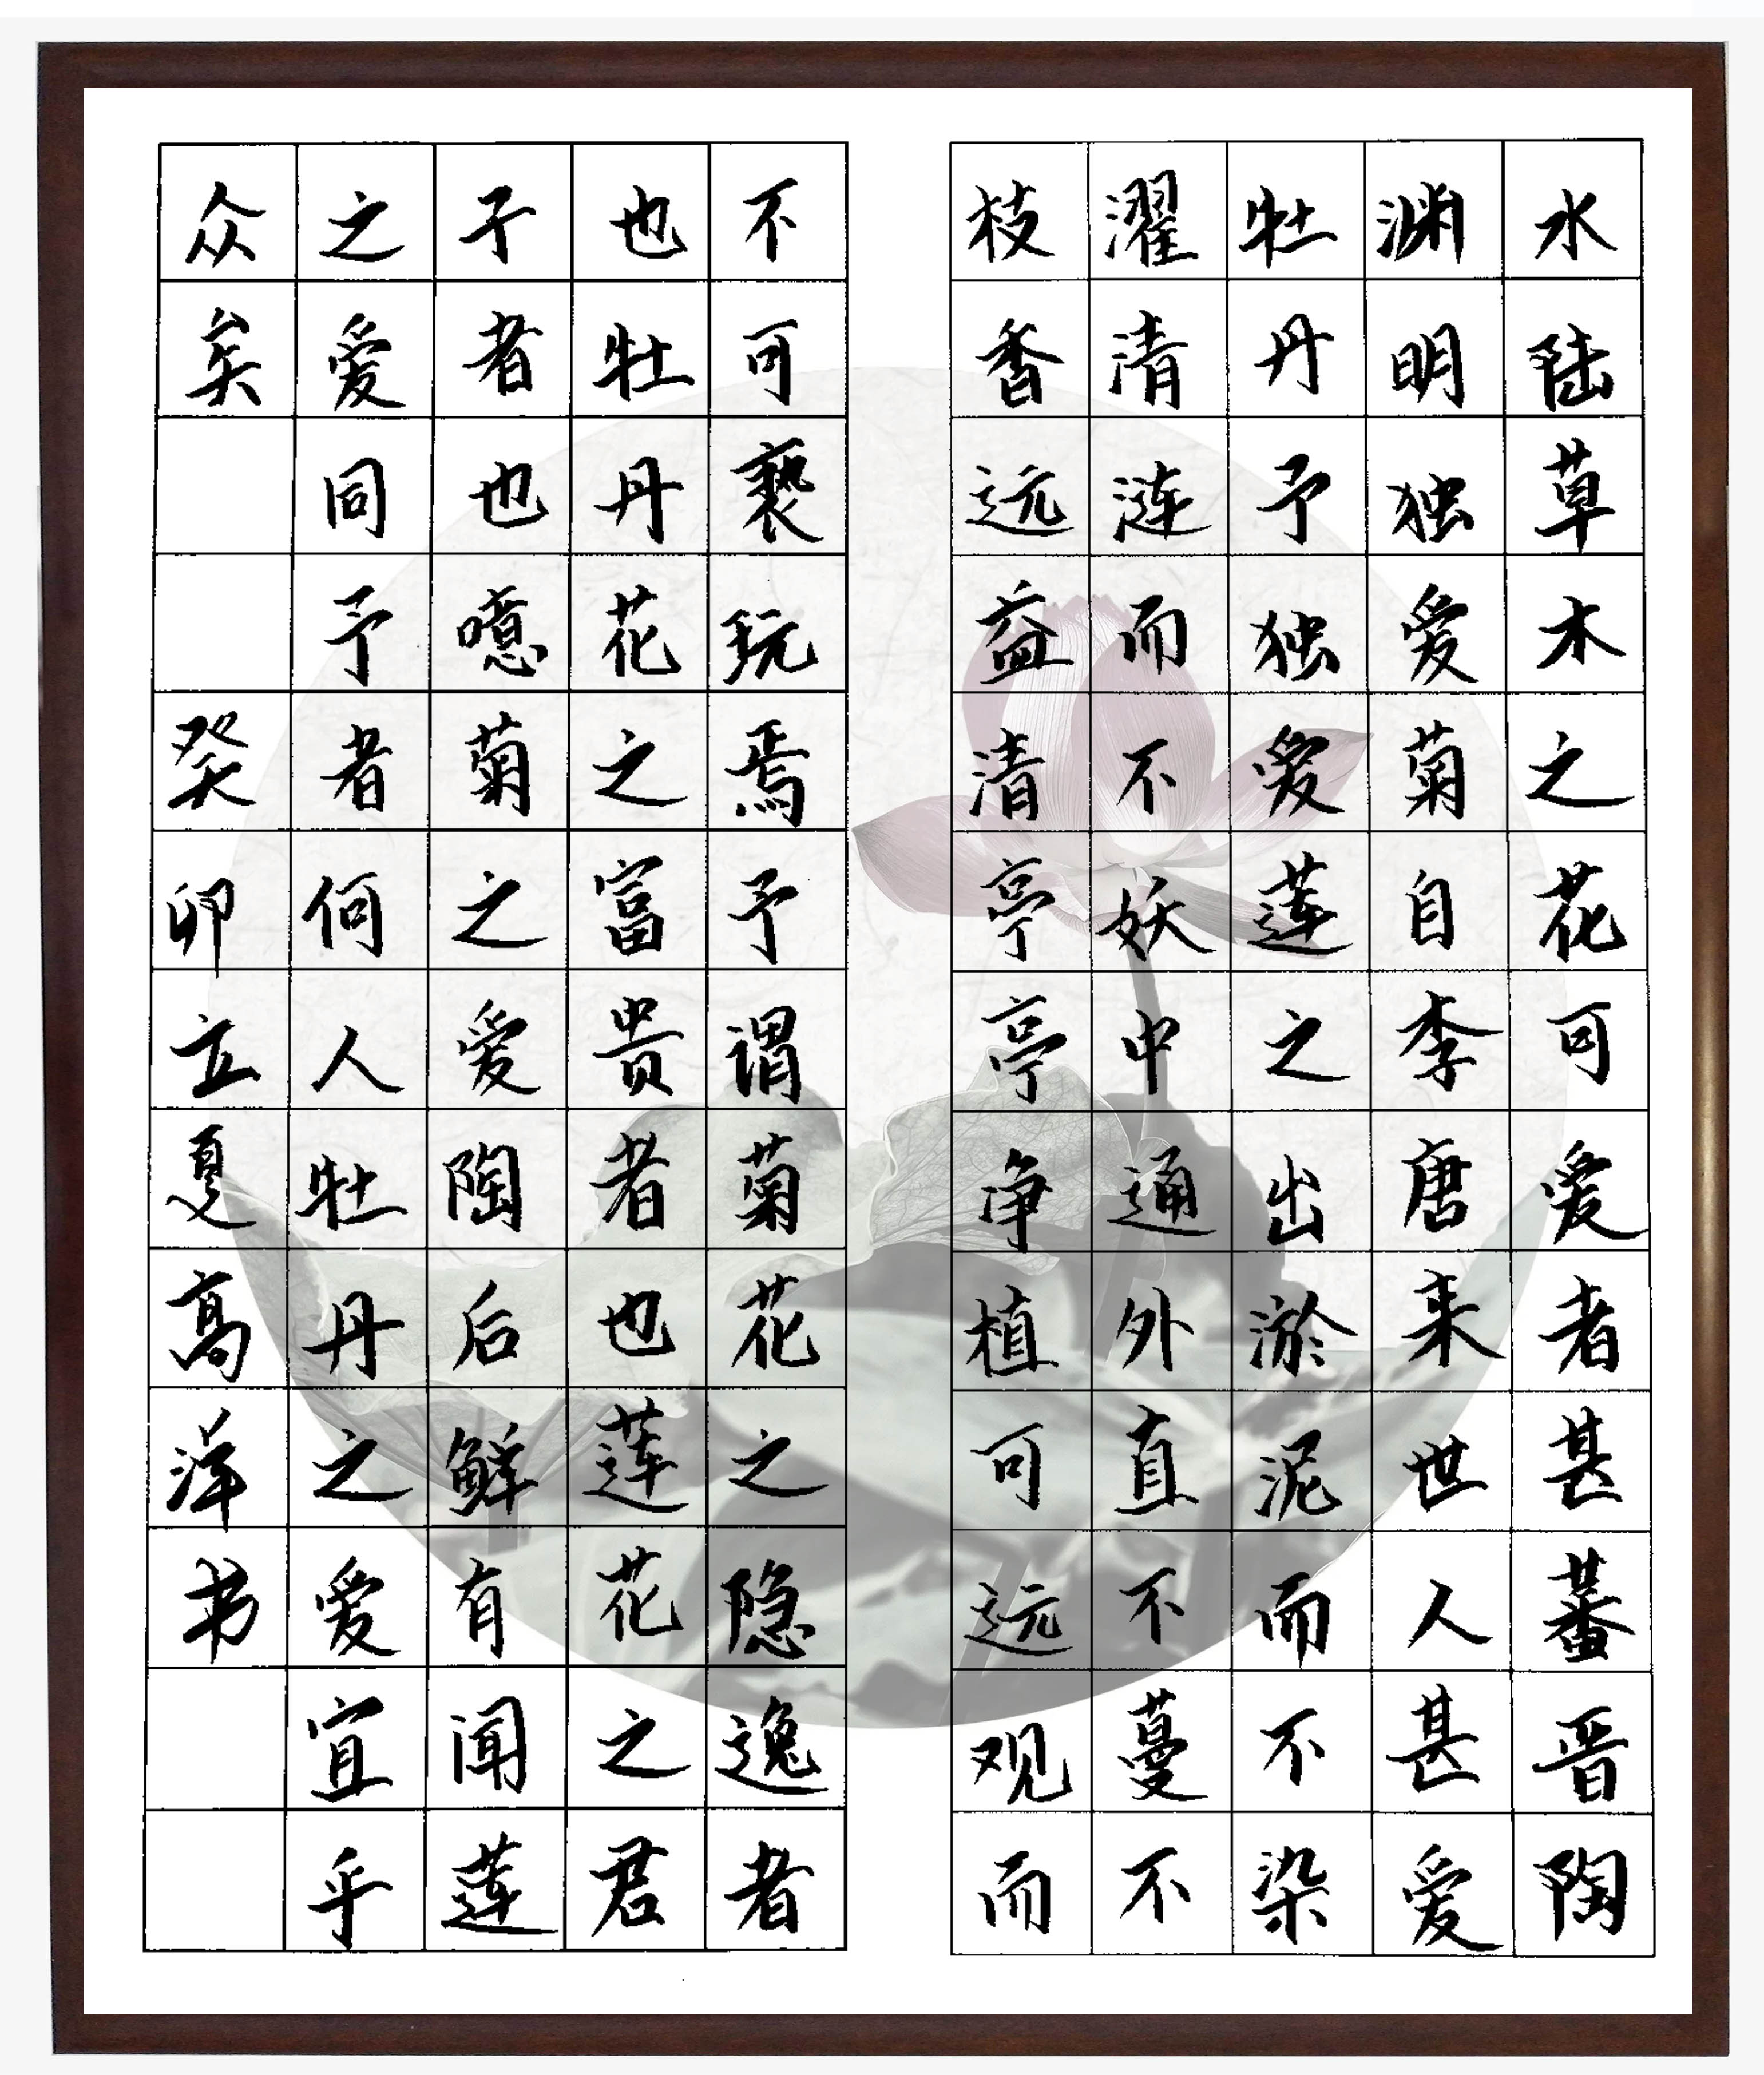 水陆草木之花可爱者甚蕃晋陶
渊明独爱菊自李唐来世人甚爱
牡丹予独爱莲之出淤泥而不染
濯清涟而不妖中通外直不蔓不
枝香远益清亭亭净植可远观而
不可亵玩焉予谓菊花之隐逸者
也牡丹花之富贵者也莲花之君
子者也噫菊之爱陶后鲜有闻莲
之爱同予者何人牡丹之爱宜乎
众矣 癸卯立夏高洋书